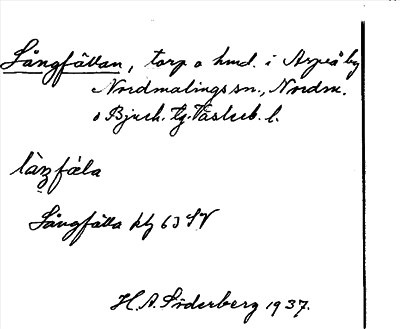 Långfällan, torp o hmd. i Aspeå by
Nordmalings sn., Nordm.
o Bjurh. tg. Västerb. l.
Långfälla kbl 63 SV
H. A. Söderberg 1937.